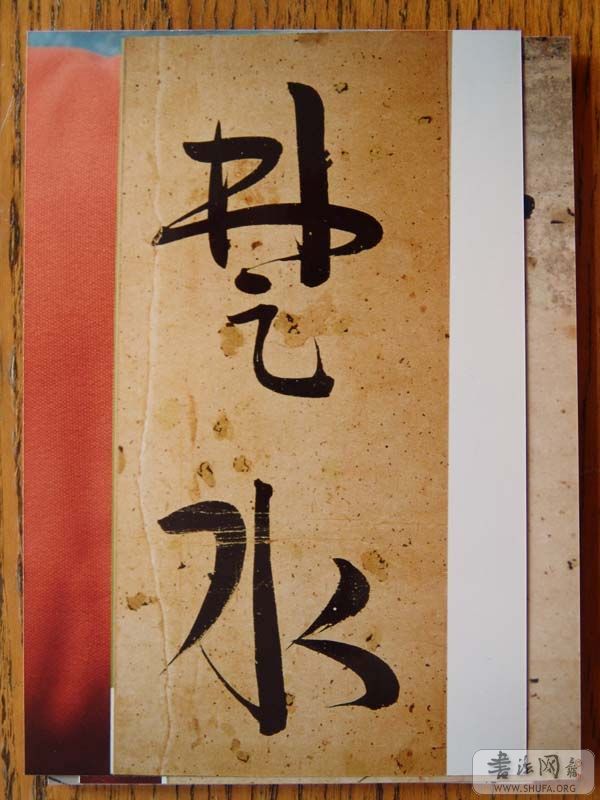 楚
水
書法网
WWW.SHUFA.ORG